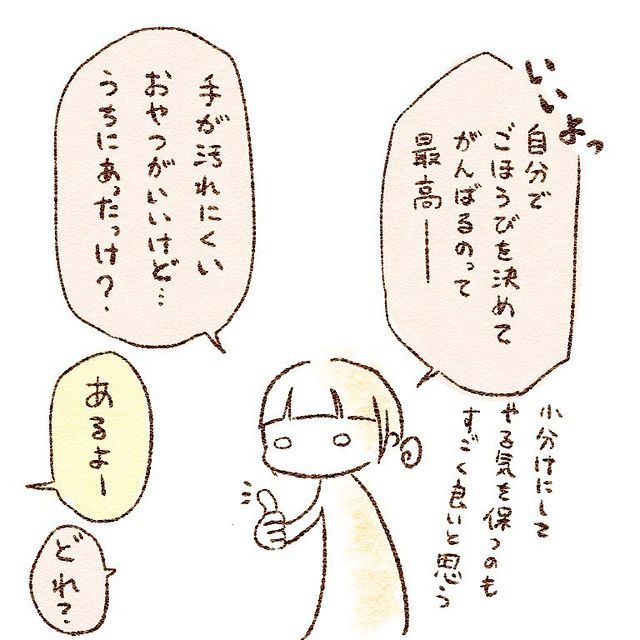 いいよっ
自分で
ごほうびを決めて
がんばるのって
最高――
小分けにして
やる気を保つのも
すごく良いと思う
手が汚れにくい
おやつがいいけど…
うちにあったっけ?
あるよー
どれ?